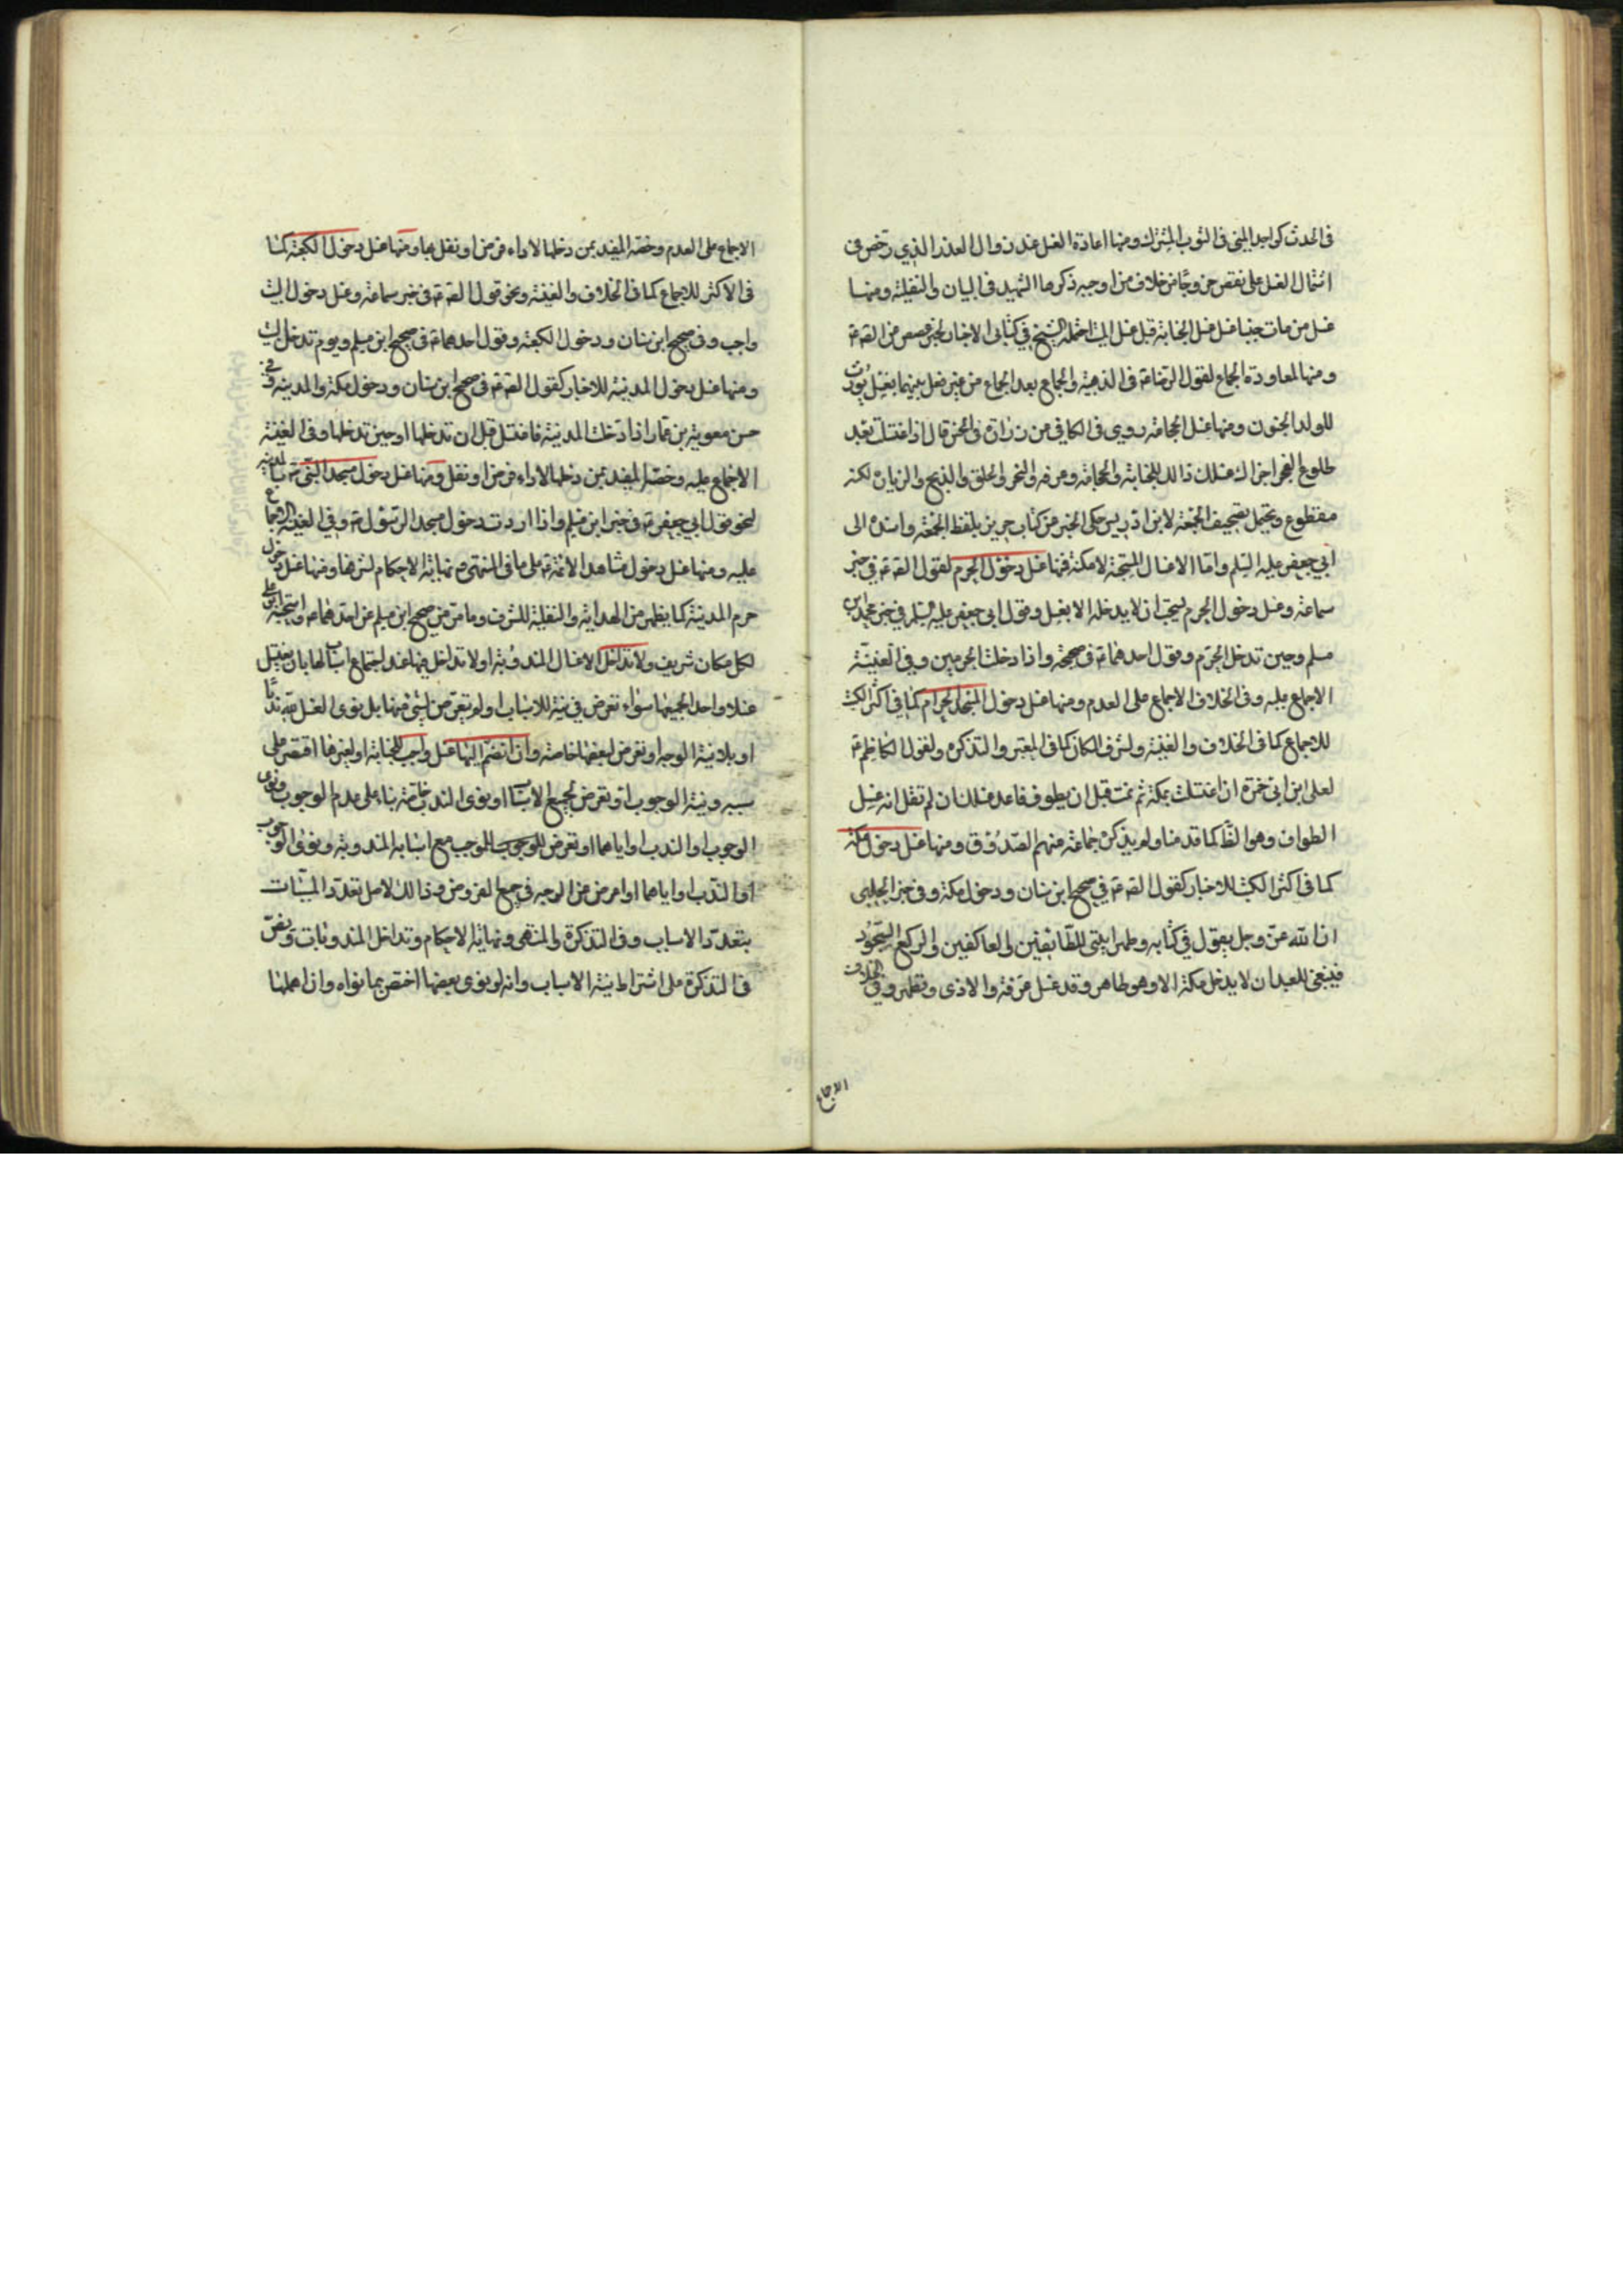 في الحدث كواجد المني في الثوب المشترك ومنها اعادة الغسل عند زوال العذر الذي رخص في
اشتمال الغسل على نقص خروجا من خلاف من اوجبه ذكرها الشهيد في البيان والنفلية ومنها
غسل من مات جنبا غسل الجنابة قبل غسل الميت احتمله الشيخ في كتابي الاخبار لخبر عيص عن الصّ ع
ومنها لمعاودة الجماع لقول الرضا ع في الذهبية والجماع بعد الجماع من غير فصل بينهما بغسل يورث
للولد الجنون ومنها غسل الحجامة روى في الكافي عن زرارة في الحسن قال اذا اغتسلت بعد
طلوع الفجر اجزاك غسلك ذالك للجنابة والحجامة وعرفه والنحر والحلق والذبح والزيارة لكنه
مقطوع ويحتمل تصحيف الجمعة لان ابن ادريس حكى الخبر من كتاب حريز بلفظ الجمعة واسنده الى
ابي جعفر عليه السلم وامّا الاغسال المستحبة لامكنة فمنها غسل دخول الحرم لقول الصّ ع في خبر
سماعة وغسل دخول الحرم يستحب ان لا يدخله الا بغسل وقول ابي جعفر عليه السلم في خبر محمد بن
مسلم وحين تدخل الحرم وقول احدهما ع في صحيحه واذا دخلت الحرمين وفي الغنية
الاجماع عليه وفي الخلاف الاجماع على العدم ومنها غسل دخول المسجد الحرام كما في اكثر الكتب
للاجماع كما في الخلاف والغنية ولشرف المكان كما في المعتبر والتذكرة ولقول الكاظم ع
لعلي ابن ابي حمزة ان اغتسلت بمكة ثم نمت قبل ان يطوف فاعد غسلك ان لم تقل انه غسل
الطواف وهو الظ كما قدمنا ولم يذكره جماعة منهم الصدوق ومنها غسل دخول مكة
كما في اكثر الكتب للاخبار كقول الصّ ع في صحيح ابن سنان ودخول مكة وفي خبر الحلبي
ان الله عز وجل يقول في كتابه وطهر بيتي للطائفين والعاكفين والركع السجود
فينبغي للعبد ان لا يدخل مكة الا وهو طاهر وقد غسل عرقه والاذى وتطهر وفي الخلاف
الاجماع
الاجماع على العدم وخصه المفيد بمن دخلها لاداء فرض او نفل بها ومنها غسل دخول الكعبة كما
في الاكثر للاجماع كما في الخلاف والغنية ونحو قول الصّ ع في خبر سماعة وغسل دخول البيت
واجب وفي صحيح ابن سنان ودخول الكعبة وقول احدهما ع في صحيح ابن مسلم ويوم تدخل البيت
ومنها غسل دخول المدينة للاخبار كقول الصّ ع في صحيح ابن سنان ودخول مكة والمدينة وفي
حسن معوية بن عمار اذا دخلت المدينة فاغتسل قبل ان تدخلها او حين تدخلها وفي الغنية
الاجماع عليه وخصّه المفيد بمن دخلها لاداء فرض او نفل ومنها غسل دخول مسجد النبي ص بالمدينة
لنحو قول ابي جعفر ع في خبر ابن مسلم واذا اردت دخول مسجد الرسول ص وفي الغنية الاجماع
عليه ومنها غسل دخول مشاهد الائمة ع على ما في المنتهى ونهاية الاحكام لشرفها ومنها غسل دخول
حرم المدينة كما يظهر من الهداية والنفلية للشرف وما مر من صحيح ابن مسلم عن احدهما ع واستحبه ابو علي
لكل مكان شريف ولا تداخل الاغسال المندوبة اولا تداخل بينها عند اجتماع اسبابها بان يغتسل
غسلا واحدا لجميعها سواء تعرض في نية للاسباب او لم تعرض لشئ منها بل نوى الغسل قربة ندبا
او بلا نية الوجه او تعرض لبعضها خاصة وان انضم اليها غسل واجب للجنابة او لغيرها اقتصر على
سببه ونية الوجوب او تعرض لجميع الاسباب او نوى الندب خاصة بناء على عدم الوجوب ونوى
الوجوب او الندب او اياهما او تعرض للوجوب للموجب مع اسبابه المندوبة ونوى الوجوب
او الندب او اياهما او اعرض عن الوجه في جميع الفروض وذالك لاصل تعدد المسببات
بتعدد الاسباب وفي التذكرة والمنتهى ونهاية الاحكام وتداخل المندوبات ونص
في التذكرة على اشتراط نية الاسباب وانه لو نوى بعضها اختص بما نواه وان اهملها